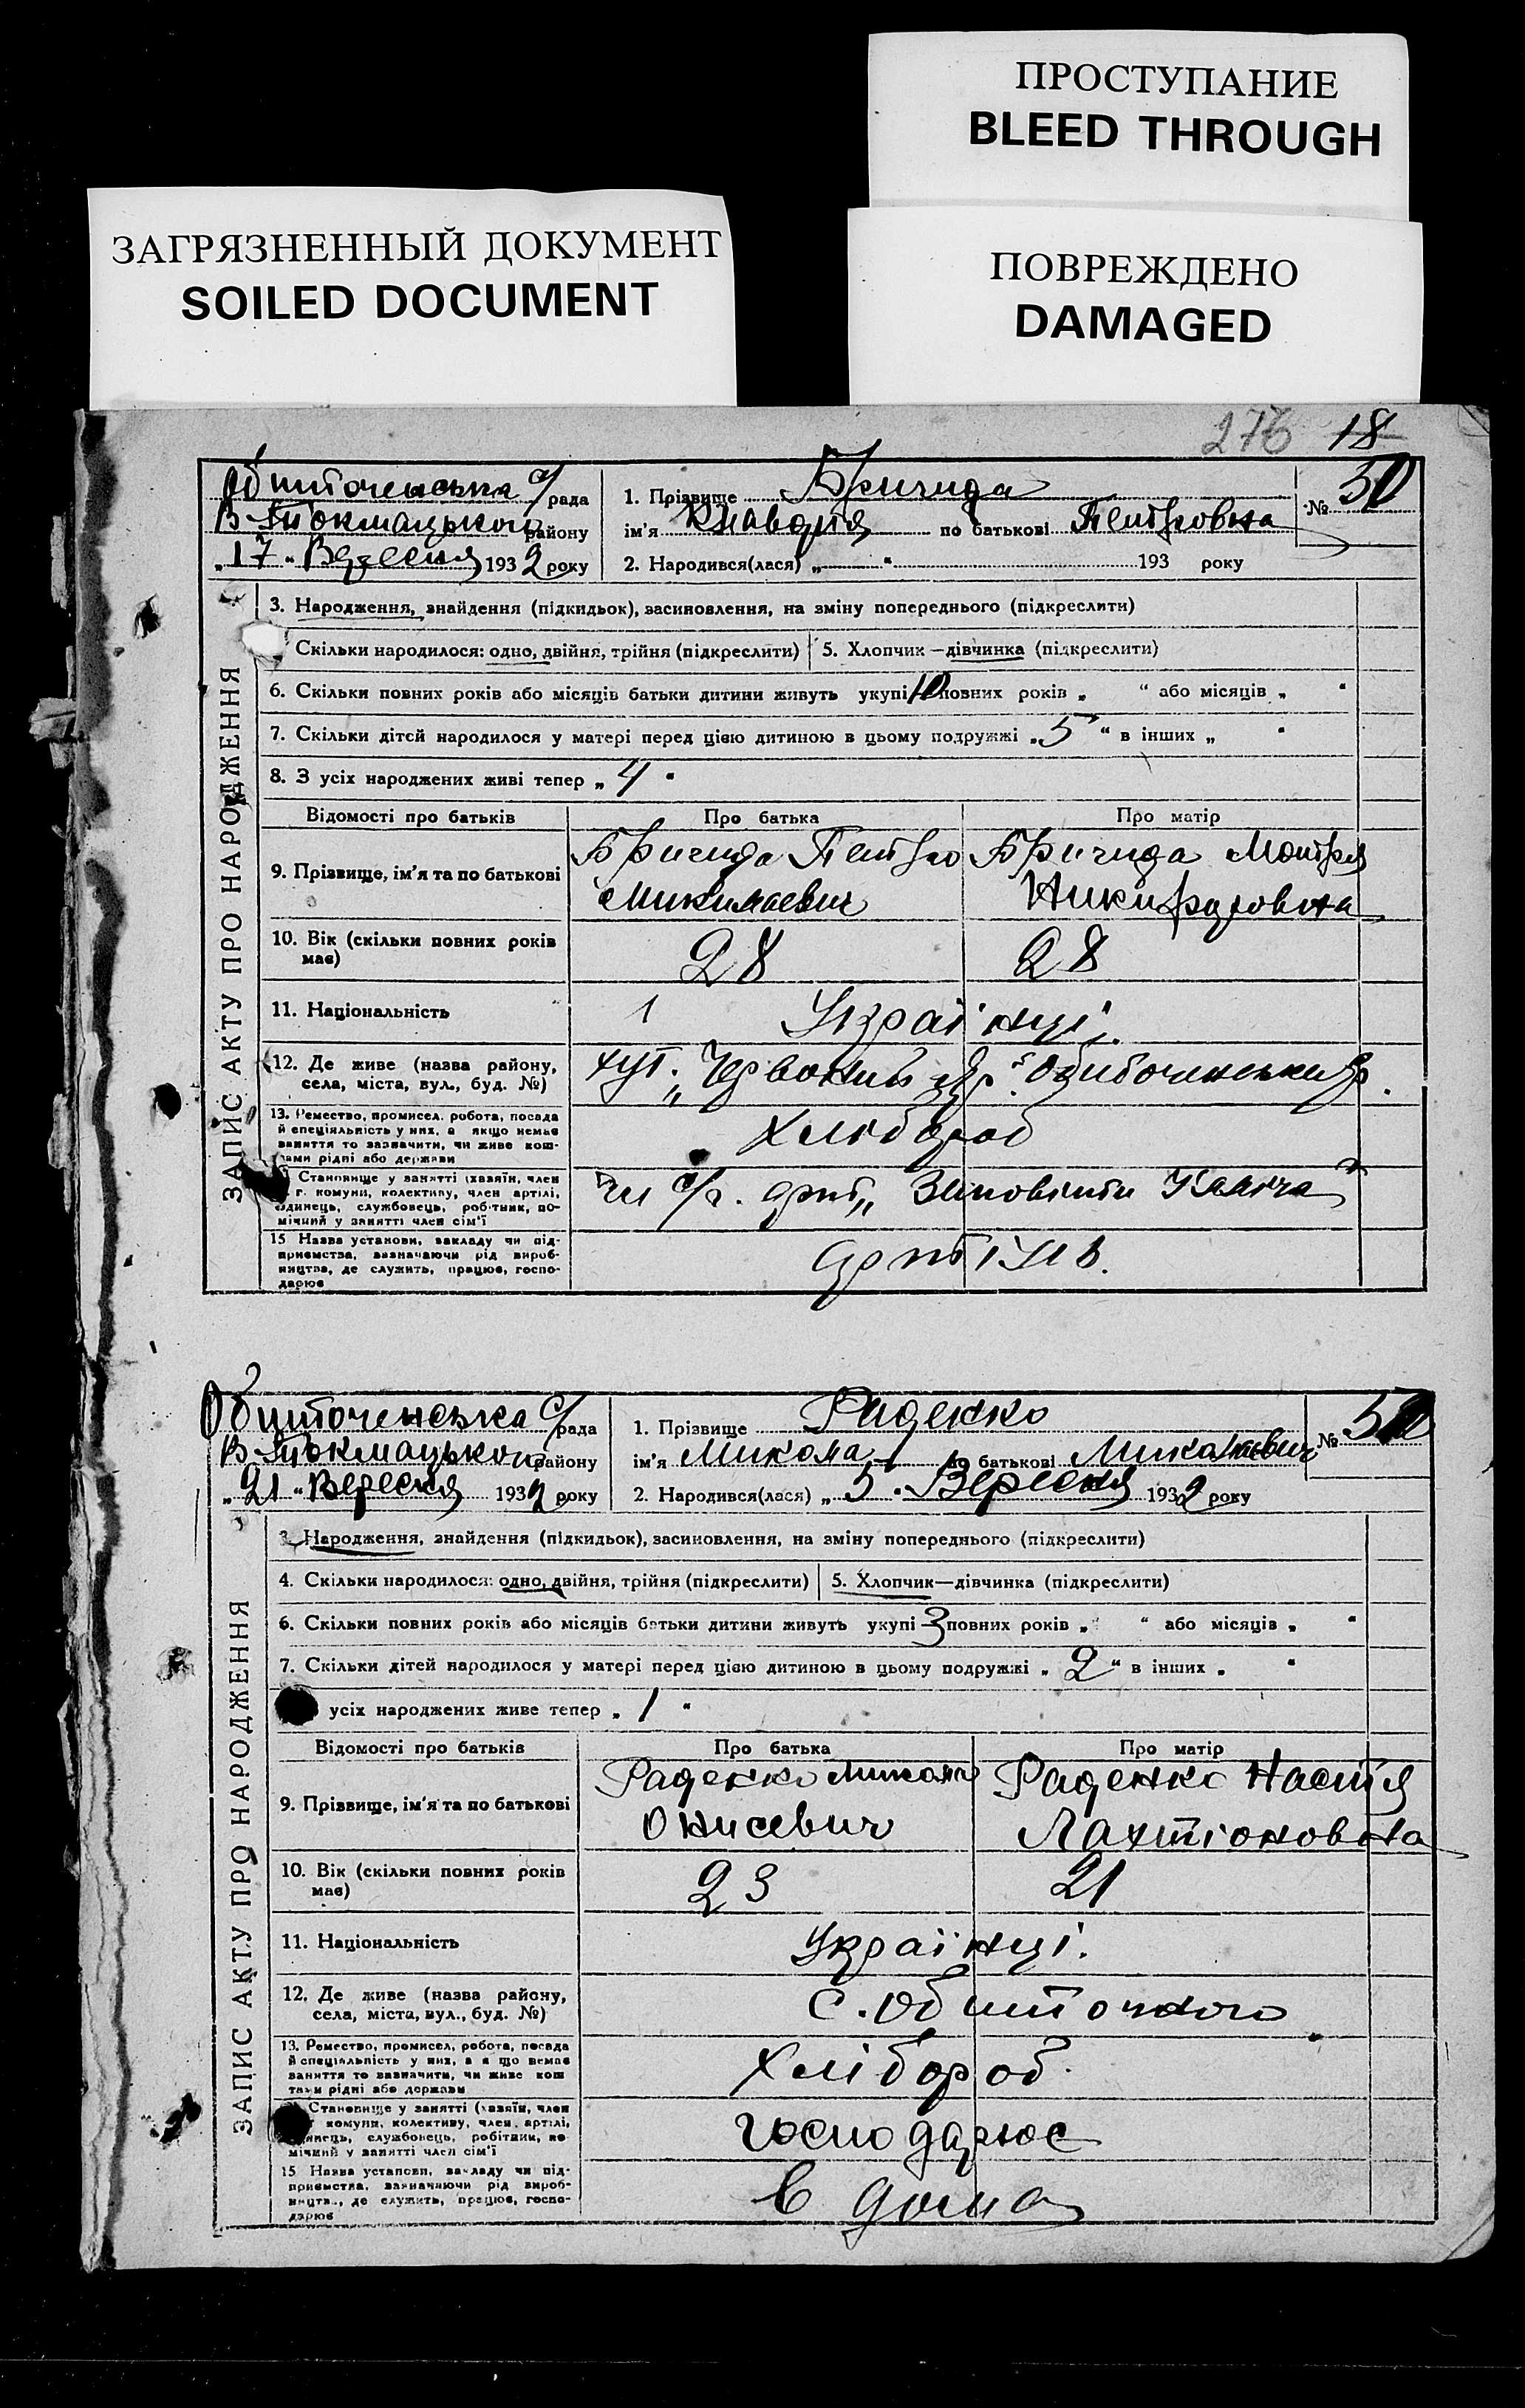 ПРОСТУПАНИЕ
BLEED THROUGH
ЗАГРЯЗНЕННЫЙ ДОКУМЕНТ
SOILED DOCUMENT
ПОВРЕЖДЕНО
DAMAGED
276 18
Обиточенська с/рада
В-Токмацького району
„17“ Вересня 1932 року
1. Прізвище Бричида
ім'я по батькові Петровна
№ 50
2. Народився(лася) „ “ 193 року
ЗАПИС АКТУ ПРО НАРОДЖЕННЯ
3. Народження, знайдення (підкидьок), засиновлення, на зміну попереднього (підкреслити)
Скільки народилося: одно, двійня, трійня (підкреслити) 5. Хлопчик—дівчинка (підкреслити)
6. Скільки повних років або місяців батьки дитини живуть укупі 10 повних років „ “ або місяців „ “
7. Скільки дітей народилося у матері перед цією дитиною в цьому подружжі „5“ в інших „ “
8. З усіх народжених живі тепер „4“
Відомості про батьків Про батька Про матір
9. Прізвище, ім'я та по батькові
Бричида Петро
Миколаевич
Бричида Мотря
Никифоровна
10. Вік (скільки повних років має) 28 28
11. Національність Українці.
12. Де живе (назва району, села, міста, вул., буд. №)
хут. „Червоний Яр“
13. Ремество, промисел, робота, посада
й спеціяльність у них, а якщо немає
заняття то зазначити, чи живе кош-
тами рідні або держави
Хлібороб
Становище у занятті (хазяїн, член
г. комуни, колективу, член артілі,
одинець, службовець, робітник, по-
мічний у занятті член сім'ї
чл с/г. арт„ Заповіти Ілліча“
15 Назва установи, закладу чи під-
приємства, визначаючи рід вироб-
ництва, де служить, працює, госпо-
дарює
артіль.
Обиточенська с/рада
В-Токмацького району
„21“ Вересня 1932 року
1. Прізвище Раденко
ім'я Микола по батькові Миколаевич
№
2. Народився(лася) „5“ Вересня 1932 року
ЗАПИС АКТУ ПРО НАРОДЖЕННЯ
3. Народження, знайдення (підкидьок), засиновлення, на зміну попереднього (підкреслити)
4. Скільки народилося: одно, двійня, трійня (підкреслити) 5. Хлопчик—дівчинка (підкреслити)
6. Скільки повних років або місяців батьки дитини живуть укупі 3 повних років „ “ або місяців „ “
7. Скільки дітей народилося у матері перед цією дитиною в цьому подружжі „2“ в інших „ “
усіх народжених живе тепер „1“
Відомості про батьків Про батька Про матір
9. Прізвище, ім'я та по батькові
Раденко Микола
Онисевич
Раденко Настя
Лахтіоновна
10. Вік (скільки повних років має) 23 21
11. Національність Українці.
12. Де живе (назва району, села, міста, вул., буд. №)
с. Обиточного
13. Ремество, промисел, робота, посада
й спеціяльність у них, а якщо немає
заняття то зазначити, чи живе кош
тами рідні або держави
Хлібороб.
Становище у занятті (хазяїн, член
комуни, колективу, член артілі,
одинець, службовець, робітник, по
мічний у занятті член сім'ї
господарює
15 Назва установи, закладу чи під-
приємства, визначаючи рід вироб-
ництва, де служить, працює, госпо-
дарює
в дома